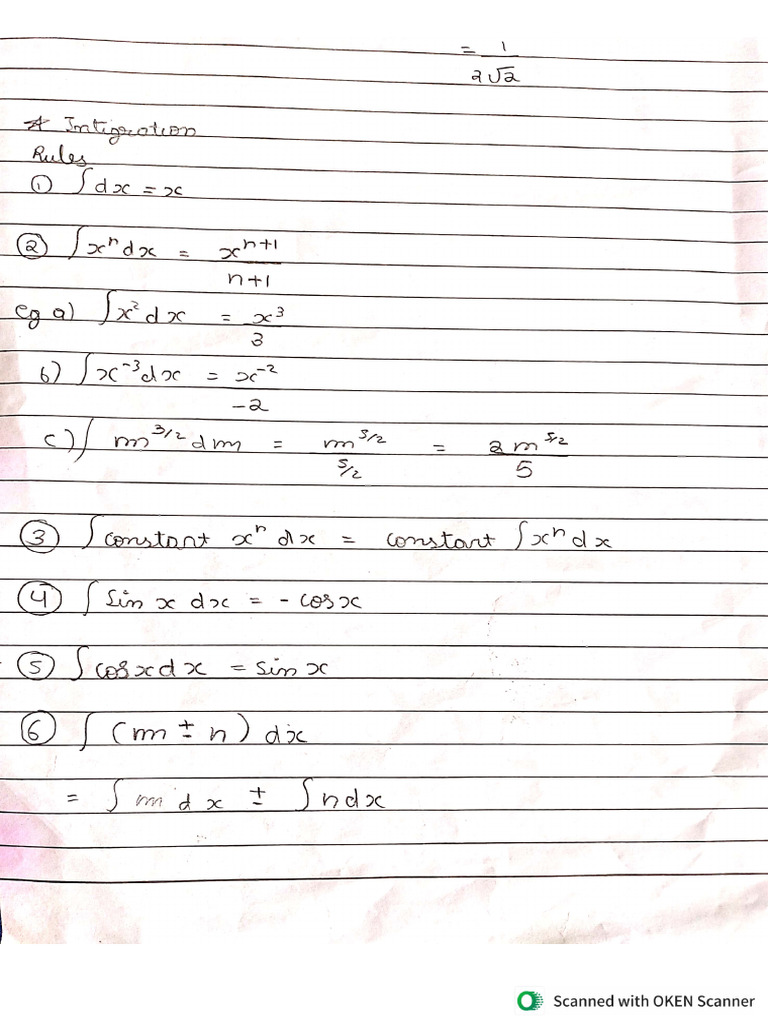 = 1
2√2
* Intigration
Rules
① ∫dx = x
② ∫xⁿdx = xⁿ⁺¹
n+1
eg a) ∫x²dx = x³
3
b) ∫x⁻³dx = x⁻²
-2
c) ∫ m^3/2 dm = m^5/2 = 2m^5/2
5/2 5
③ ∫constant xⁿ dx = constant ∫xⁿdx
④ ∫sin x dx = - cosx
⑤ ∫cosxdx = sinx
⑥ ∫ (m ± n) dx
= ∫ m dx ± ∫ndx
Scanned with OKEN Scanner